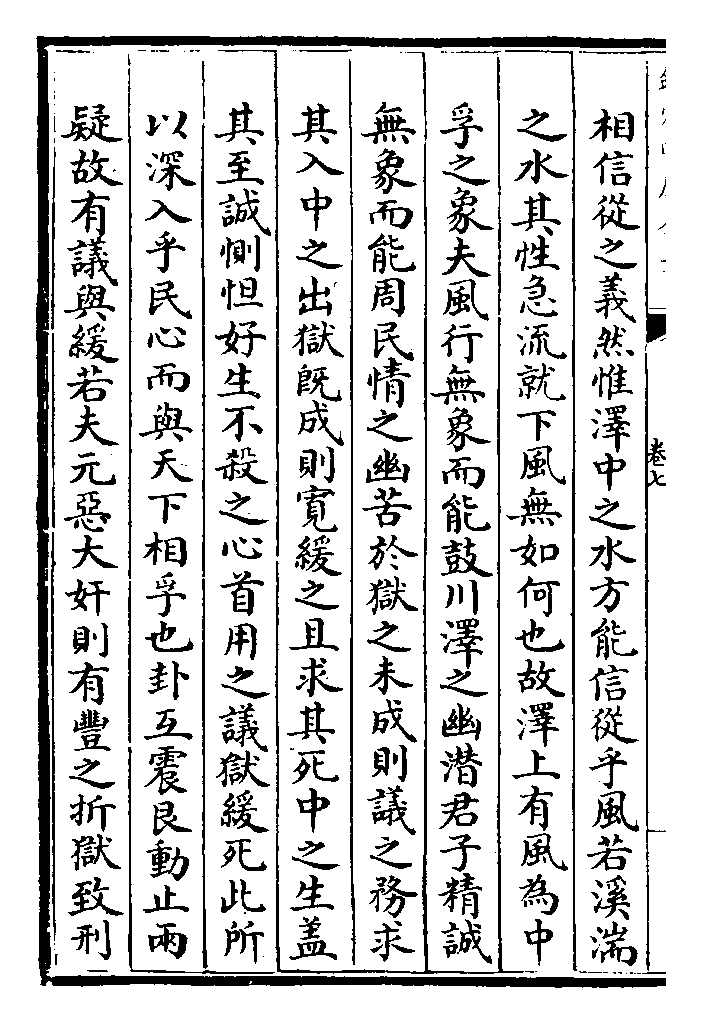 卷七
相信從之義然惟澤中之水方能信從乎風若溪湍
之水其性急流就下風無如何也故澤上有風為中
孚之象夫風行無象而能鼓川澤之幽潜君子精誠
無象而能周民情之幽苦於獄之未成則議之務求
其入中之出獄既成則寛緩之且求其死中之生盖
其至誠惻怛好生不殺之心首用之議獄緩死此所
以深入乎民心而與天下相孚也卦互震艮動止兩
疑故有議與緩若夫元惡大奸則有豐之折獄致刑